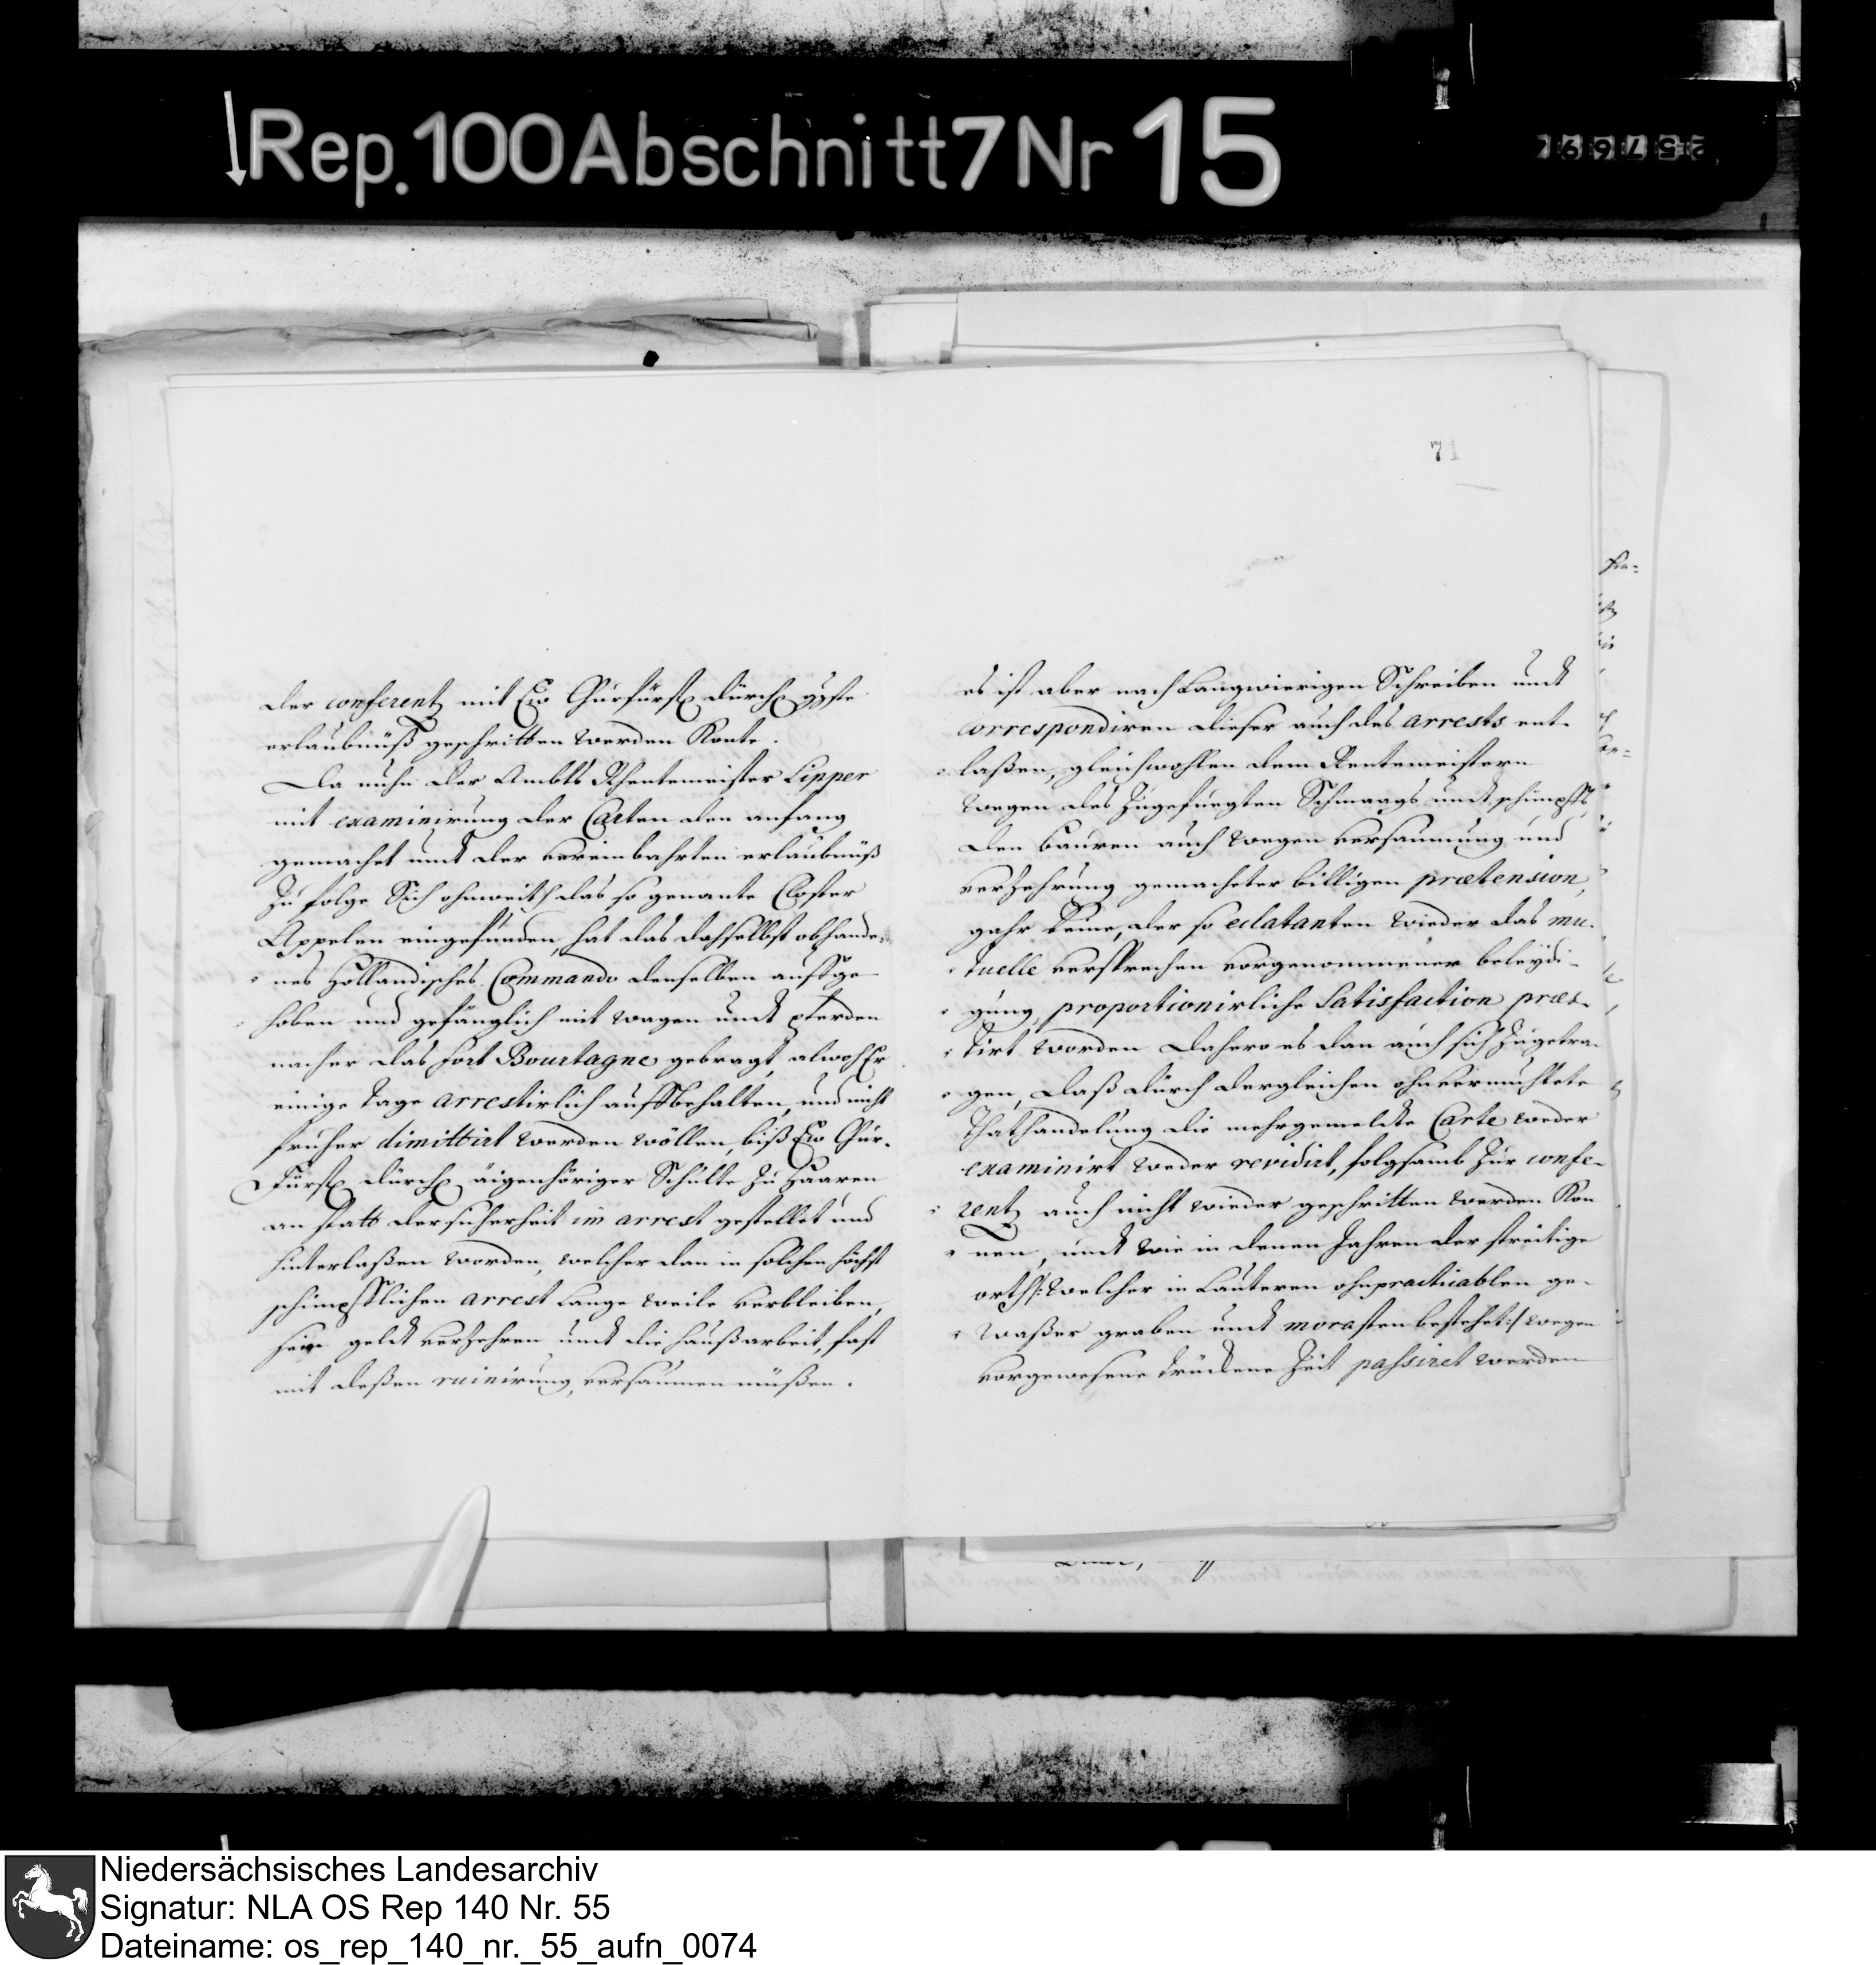 Rep. 100 Abschnitt 7 Nr 15
71
der conferentz mit Ew Churfürstl dürchl ggste
erlaubnüß geschritten werden Konte.
Da nuhn der Ambts Rhentemeister Lipper
mit examinirung der Carten den anfang
gemachet undt der vereinbahrten erlaubnüß
Zu folge Sich ohnweith das so genante Closter
Appelen eingefunden, hat das dahselbst obhande-
nes Hollandisches Commando denselben auffge
hoben und gefänglich mit wagen undt pferden
nacher das fort Bourtagne gebragt, alwoh Er
einige tage arrestirlich auffbehalten, und nicht
fruher dimittirt werden wöllen, biß Ew Chur-
Fürstl dürchl äigenhöriger Schulte zu Haaren
an statt der sicherheit im arrest gestellet und
hinterlaßen worden, welcher dan in solchen höchst
schimpfflichen arrest Lange weile verbleiben,
sein geldt verzehren undt die haußarbeit, fast
mit deßen ruinirung, versäumen müßen.
es ist aber nach Langwierigen Schreiben undt
correspondiren dieser auch des arrests ent-
laßen, gleichwohlen dem Rentemeistern
wegen des Zugefuegten Schmaags undt schimpffs,
den bauren auch wegen versaumung und
verzehrung gemacheter billigen prætension,
gahr keine, der so eclatanten wieder das mu-
tuelle versprechen vorgenommener beleydi-
gung, proportionirliche Satisfaction præs-
tirt worden dahero es dan auch sich Zugetra-
gen, daß dürch dergleichen ohnvermuhtete
Thathandelung die mehrgemeldte Carte weder
examinirt weder revidirt, folgsamb zur confe-
rentz auch nicht wieder geschritten werden Kon
nen, undt wie in denen Jahren der streitige
orth /: welcher in Lauteren ohnpracticablen ge-
waßer graben undt morasten bestehet :/ wegen
vorgewesene trückene Zeit passiret werden
Niedersächsisches Landesarchiv
Signatur: NLA OS Rep 140 Nr. 55
Dateiname: os_rep_140_nr._55_aufn_0074